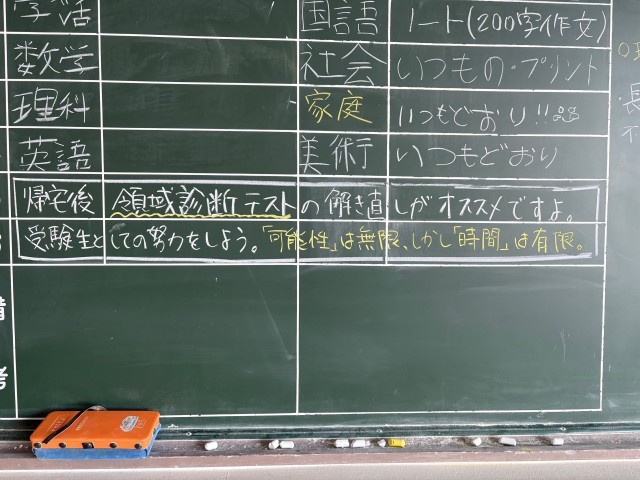 学活
国語
ノート(200字作文)
数学
社会
いつもの・プリント
理科
家庭
いつもどおり!!
英語
美術
いつもどおり
帰宅後 領域診断テストの解き直しがオススメですよ。
受験生としての努力をしよう。「可能性」は無限、しかし「時間」は有限。
備
考